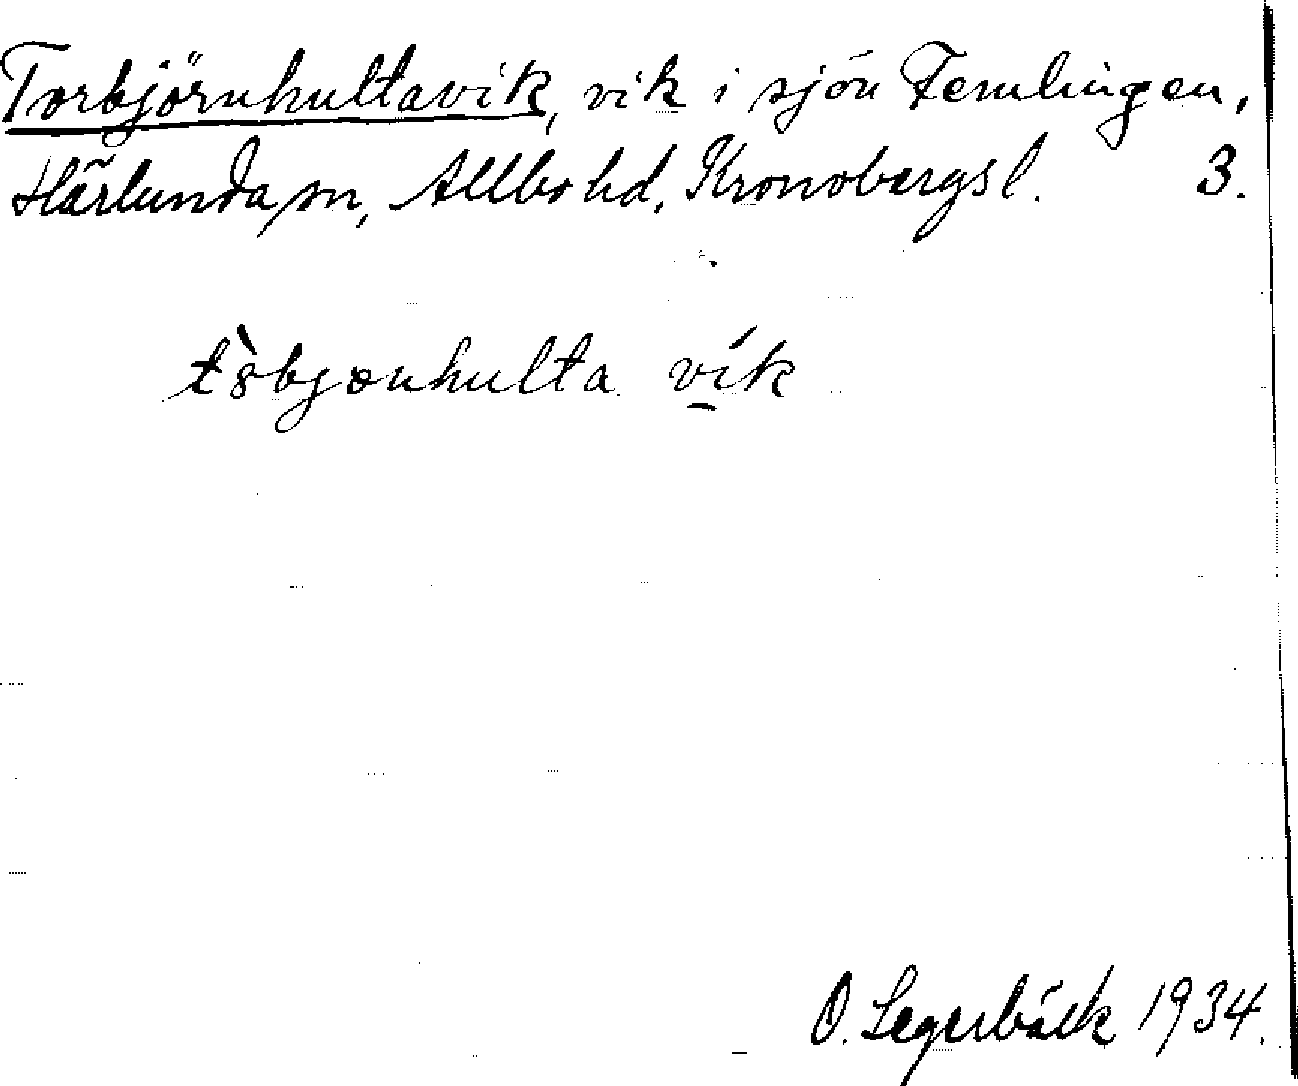 Torbjörnhultavik, vik i sjön Femlingen,
Härlunda sn, Allbo hd, Kronobergs l. 3.
t8̀bjɔnhulta vík
O. Segerbäck 1934.